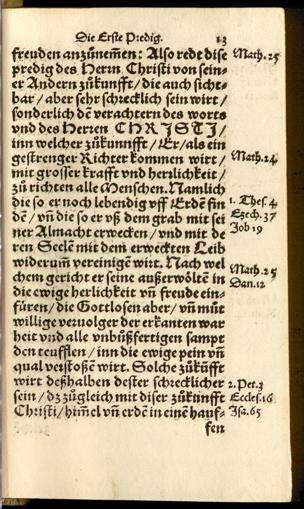 Die Erste Predig. 13
freuden anzůnem̃en: Also redt dise Math. 25
predig des Herrn Christi von sein-
er Andern zůkunfft / die auch sicht-
bar / aber sehr schrecklich sein wirt /
sonderlich dẽ verachtern des worts
vnd des Herren CHRISTI /
inn welcher zůkunnfft / Er / als ein
gestrenger Richter kommen wirt / Math. 24.
mit grosser krafft vnd herlichkeit /
zů richten alle Menschen. Namlich
die so er noch lebendig vff Erdẽ fin 1. Thes. 4.
dẽ / vñ die so er vß dem grab mit sei Ezech. 37
ner Almacht erwecken / vnd mit de Job 19
ren Seelẽ mit dem erweckten Leib
widerum̃ vereinigẽ wirt. Nach wel
chem gericht er seine außerwölten in Math. 25
die ewige herlichkeit vñ freude ein- Dan. 12
füren / die Gottlosen aber / vñ můt
willige veruolger der erkanten war
heit vnd alle vnbůßfertigen sampt
den teufflen / inn die ewige pein vñ
qual verstossẽ wirt. Solche zůkũfft
wirt deßhalben dester schrecklicher 2. Pet. 3
sein / dz zůgleich mit diser zůkũnfft Eccles. 16
Christi / him̃el vñ erdẽ in einẽ hauf- Isa. 65
fen